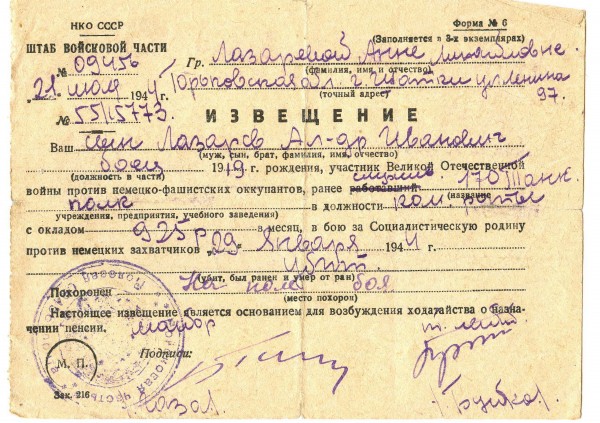 НКО СССР
Форма № 6
(Заполняется в 3-х экземплярах)
ШТАБ ВОЙСКОВОЙ ЧАСТИ
№ 09456
Гр. Лазаревой Анне Михайловне
(фамилия, имя и отчество)
21 июля 1944 г.
г. ул Ленина 97.
(точный адрес)
№ 55/5773.
ИЗВЕЩЕНИЕ
Ваш сын Лазарев Ал-др Иванович
(муж, сын, брат, фамилия, имя, отчество)
боец 1919 г. рождения, участник Великой Отечественной
(должность в части)
войны против немецко-фашистских оккупантов, ранее работавший 170 Танк.
(название
полк в должности ком. роты
учреждения, предприятия, учебного заведения)
с окладом 925р в месяц, в бою за Социалистическую родину
против немецких захватчиков „29“ Января 1944 г.
убит
(убит, был ранен и умер от ран)
Похоронен На поле боя
(место похорон)
Настоящее извещение является основанием для возбуждения ходатайства о назна-
чении пенсии.
майор
Подписи:
М. П.
Зак. 216